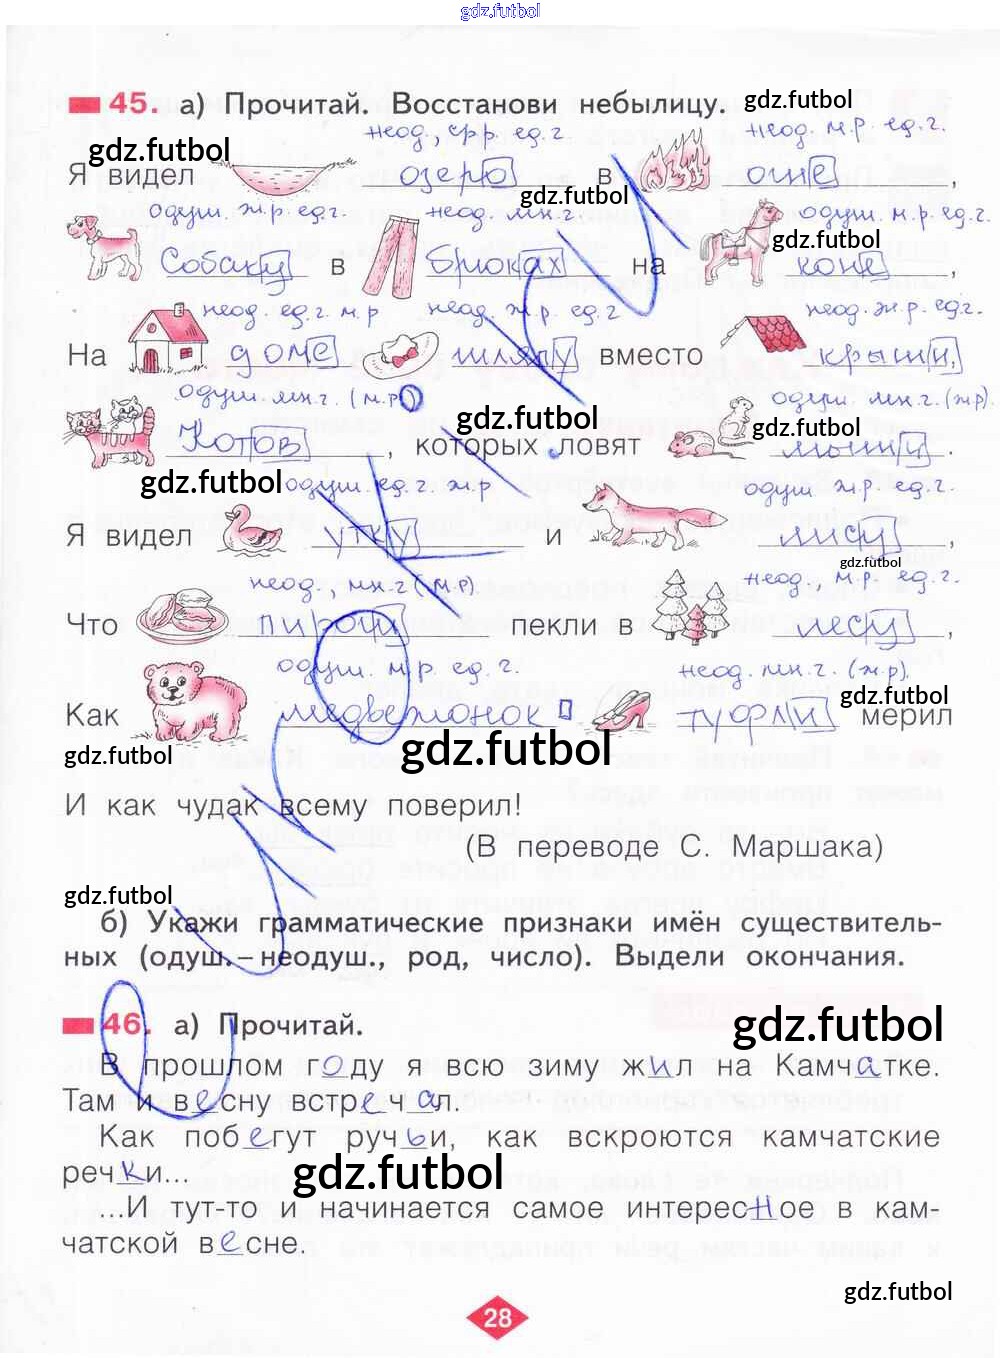 gdz.futbol
45. а) Прочитай. Восстанови небылицу. gdz.futbol
gdz.futbol неод., ср.р. ед.г. неод. м.р. ед.г.
Я видел озеро в огне,
gdz.futbol
одуш. ж.р. ед.г. неод. мн.г одуш. м.р. ед.г.
gdz.futbol
Собаку в брюках на коне,
неод. ед.г. м.р неод. ж.р. ед.г неод. ж.р. ед.г.
На доме шляпу вместо крыши,
одуш. мн.г. (м.р) одуш. мн.г. (ж.р)
gdz.futbol gdz.futbol
Котов, которых ловят мыши.
gdz.futbol одуш. ед.г. ж.р одуш ж.р. ед.г.
Я видел утку и лису,
gdz.futbol
неод., мн.г (м.р) неод., м.р. ед.г.
Что пироги пекли в лесу,
одуш. м.р. ед.г. неод. мн.г. (ж.р).
gdz.futbol
Как медвежонок туфли мерил
gdz.futbol gdz.futbol
И как чудак всему поверил!
(В переводе С. Маршака)
gdz.futbol
б) Укажи грамматические признаки имён существитель-
ных (одуш.–неодуш., род, число). Выдели окончания.
46. а) Прочитай. gdz.futbol
В прошлом году я всю зиму жил на Камчатке.
Там и весну встречал.
Как побегут ручьи, как вскроются камчатские
речки...
gdz.futbol
...И тут-то и начинается самое интересное в кам-
чатской весне.
gdz.futbol
28